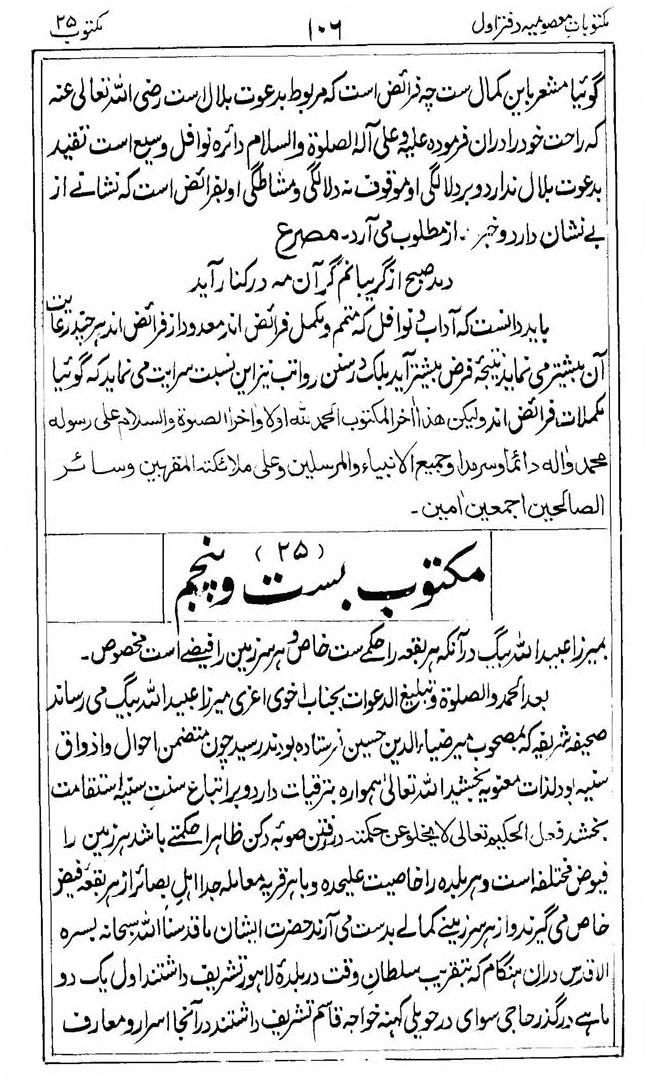 مکتوبات معصومیہ دفتر اول ۱۰۶ مکتوب ۲۵
گوئیا مشعر باین کمال ست چہ فرائض است کہ مربوط بدعوت بلال ست رضی اللہ تعالی عنہ
کہ راحت خود را دران فرمودہ علیہ وعلی آلہ الصلوۃ والسلام دائرہ نوافل وسیع است تقید
بدعوت بلال ندارد و بر دلالگی او موقوف نہ دلالگی و مشاطگی او بفرائض است کہ نشانے از
بے نشان دارد و خبر از مطلوب می آرد۔ مصرع
دمد صبح از گریبانم گر آن مہ در کنار آید
باید دانست کہ آداب و نوافل کہ متمم و مکمل فرائض اند معدود از فرائض اند ہر چند رعایت
آن بیشتر می نماید نتیجۂ فرض بیشتر آید بلکہ در سنن رواتب نیز این نسبت سرایت می نماید کہ گوئیا
مکملات فرائض اند ولیکن ھذا اٰخر المکتوب الحمد للہ اولا واٰخرا الصلوۃ والسلام علی رسولہ
محمد واٰلہ دائما وسرمدا وجمیع الانبیاء والمرسلین وعلی ملائکتہ المقربین وسائر
الصالحین اجمعین اٰمین۔
(۲۵)
مکتوب بست و پنجم
بمیرزا عبید اللہ بیگ در آنکہ ہر بقعہ را حکمے ست خاص و ہر سرزمین را فیضے است مخصوص۔
بعد الحمد والصلوۃ و تبلیغ الدعوات بجناب اخوی اعزی میرزا عبید اللہ بیگ می رساند
صحیفہ شریفہ کہ بمصحوب میر ضیاء الدین حسین فرستادہ بودند رسید چون متضمن احوال و اذواق
سنیہ بود لذات معنویہ بخشید اللہ تعالیٰ ہموارہ بترقیات دارد و بر اتباع سنت سنیہ استقامت
بخشد فعل الحکیم تعالی لا یخلو عن حکمتہ در رفتن صوبہ دکن ظاہرا حکمتے باشد ہر زمین را
فیوض مختلفہ است و ہر بلدہ را خاصیت علیحدہ و با ہر قریہ معاملہ جدا اہل بصائر از ہر بقعہ فیض
خاص می گیرند و از ہر سرزمینے کمالے بدست می آرند حضرت ایشان ما قدسنا اللہ سبحانہ بسرہ
الاقدس دران ہنگام کہ بتقریب سلطان وقت در بلدۂ لاہور تشریف داشتند اول یک دو
ماہے در گذر حاجی سوای در حویلی کہنہ خواجہ قاسم تشریف داشتند در آنجا اسرار و معارف